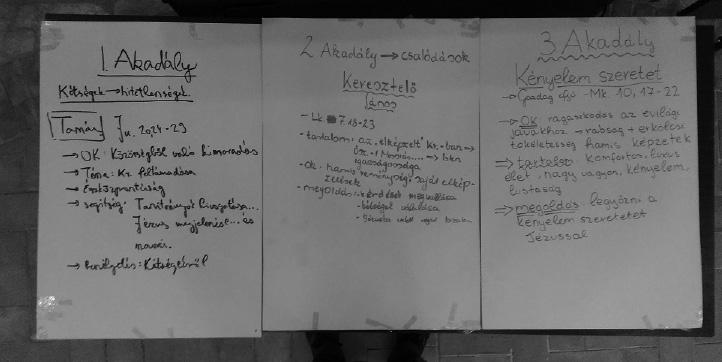 1. Akadály
Kétségek → hitetlenségek
Tamás Ju. 20,24-29
→ OK: Közösségből való kimaradás
→ Téma: Kr. feltámadása
→ segítség: Tanítványok bizonysága...
Jézus megjelenése... és
→ beszélgetés: Kétségeiről
2 Akadály → csalódások
Keresztelő
János
- Lk 7.18-23
- tartalom: az "elképzelt" Kr.-ban
→ Isten
igazságossága
- Ok: hamis reménység, saját elkép-
zelések
- megoldás: - kérdések megvallása
3. Akadály
Kényelem szeretet
→ Gazdag ifjú - Mk. 10, 17-22
→ OK ragaszkodás az evilági
javakhoz → rabság + erkölcsi
tökéletesség hamis képzetek
⇒ tartalom: komfortos, luxus
élet, nagy vagyon, kényelem,
lustaság
⇒ megoldás legyőzni a
kényelem szeretetet
Jézussal